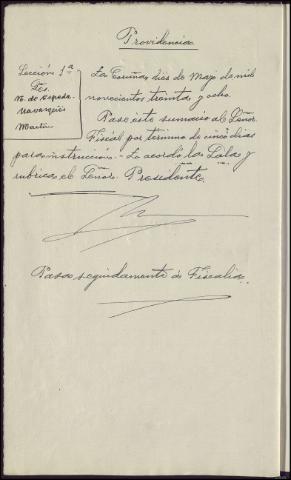 Providencia
Sección 1ª
Sres.
M. de Cepeda
Navarqués
Martín
La Coruña dies de Mayo de mil
novecientos treinta y ocho.
Pase este sumario al Señor
Fiscal por termino de cinco dias
para instrucción.- Lo acordó la Sala y
rubrica el Señor Presidente.
Pasa seguidamente a Fiscalia.